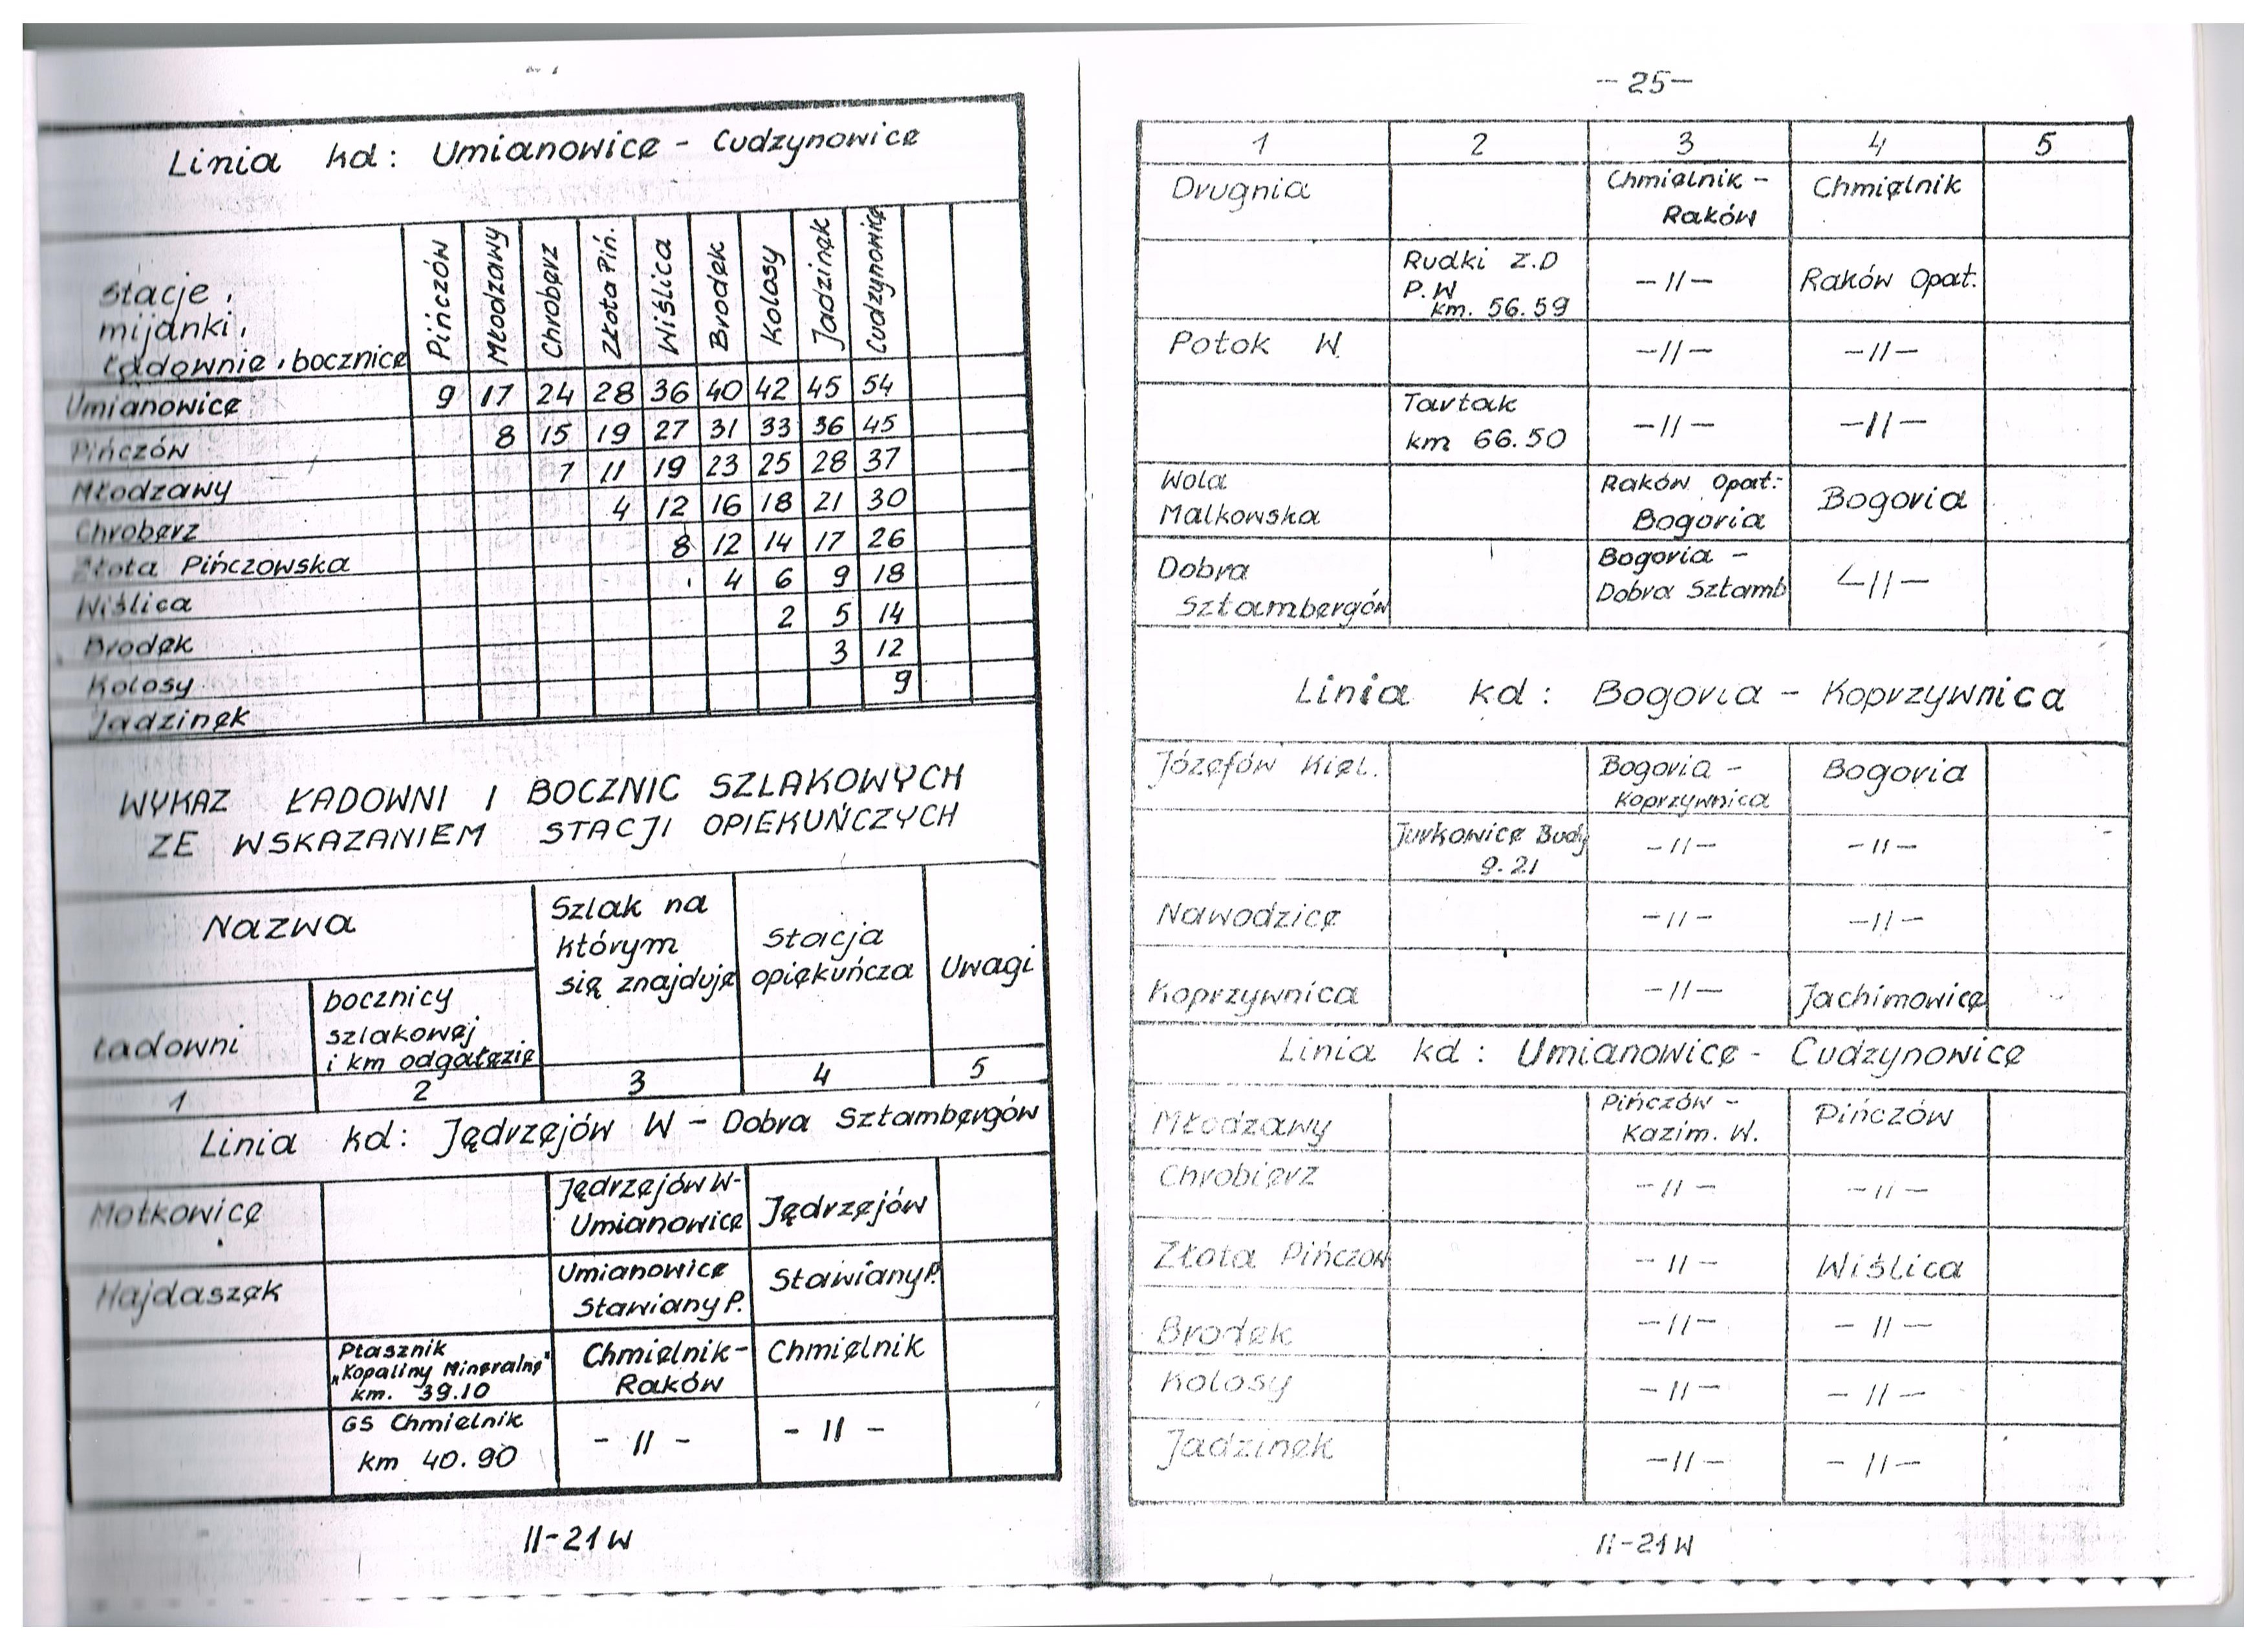 Linia kd: Umianowice - Cudzynowice
Stacje,
mijanki,
ładownie, bocznice
Pińczów
Młodzawy
Chroberz
Złota Piń.
Wiślica
Brodek
Kolosy
Jadzinek
Cudzynowice
Umianowice 9 17 24 28 36 40 42 45 54
Pińczów 8 15 19 27 31 33 36 45
Młodzawy 7 11 19 23 25 28 37
Chroberz 4 12 16 18 21 30
Złota Pińczowska 8 12 14 17 26
Wiślica 4 6 9 18
Brodek 2 5 14
Kolosy 3 12
Jadzinek 9
WYKAZ ŁADOWNI I BOCZNIC SZLAKOWYCH
ZE WSKAZANIEM STACJI OPIEKUŃCZYCH
Nazwa
ładowni
bocznicy
szlakowej
i km odgałęzie
Szlak na
którym
się znajduje
Stacja
opiekuńcza
Uwagi
1 2 3 4 5
Linia kd: Jędrzejów W - Dobra Sztambergów
Motkowice
Jędrzejów W-
Umianowice
Jędrzejów
Hajdaszek
Umianowice
Stawiany P.
Stawiany P.
Ptasznik
„Kopaliny Mineralne"
km. 39.10
Chmielnik-
Raków
Chmielnik
GS Chmielnik
km 40.90
- 11 -
- 11 -
II-21W
- 25 -
1 2 3 4 5
Drugnia
Chmielnik -
Raków
Chmielnik
Rudki Z.D
P.W
km. 56.59
- 11 -
Raków Opat.
Potok W.
- 11 -
- 11 -
Tartak
km 66.50
- 11 -
- 11 -
Wola
Malkowska
Raków Opat:-
Bogoria
Bogoria
Dobra
Sztambergów
Bogoria -
Dobra Sztamb
- 11 -
Linia kd: Bogoria - Koprzywnica
Józefów Kiel.
Bogoria -
Koprzywnica
Bogoria
Jurkowice Budy
9.21
- 11 -
- 11 -
Nawodzice
- 11 -
- 11 -
Koprzywnica
- 11 -
Jachimowice
Linia kd: Umianowice - Cudzynowice
Młodzawy
Pińczów -
Kazim. W.
Pińczów
Chrobierz
- 11 -
- 11 -
Złota Pińczow
- 11 -
Wiślica
Brodek
- 11 -
- 11 -
Kolosy
- 11 -
- 11 -
Jadzinek
- 11 -
- 11 -
II-21W